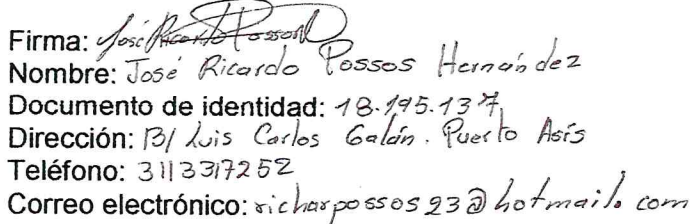 Firma: José Ricardo Possos H
Nombre: José Ricardo Possos Hernández
Documento de identidad: 18.195.137
Dirección: B/ Luis Carlos Galán. Puerto Asís
Teléfono: 3113317252
Correo electrónico: richarpossos23@hotmail.com